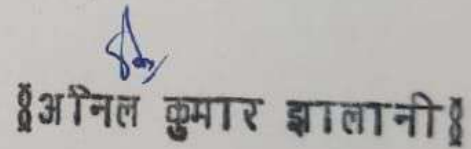 अनिल कुमार झालानी